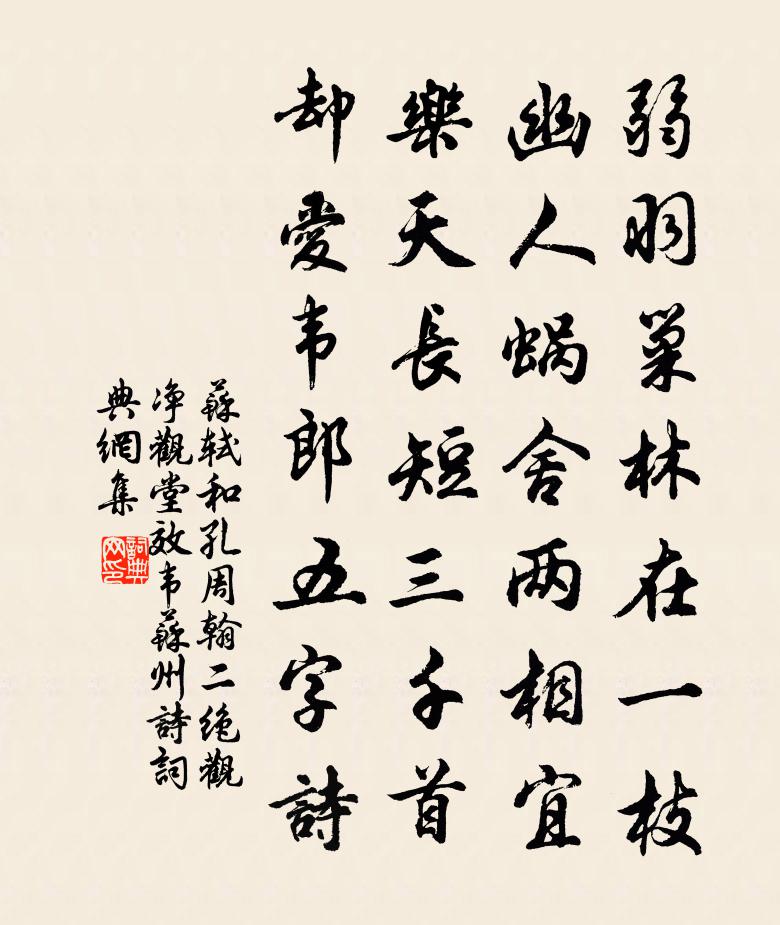 弱羽巢林在一枝
幽人蜗舍两相宜
樂天長短三千首
却愛韦郎五字詩
蘇轼和孔周翰二绝觀
净觀堂效韦蘇州詩詞
典網集
詞典网印